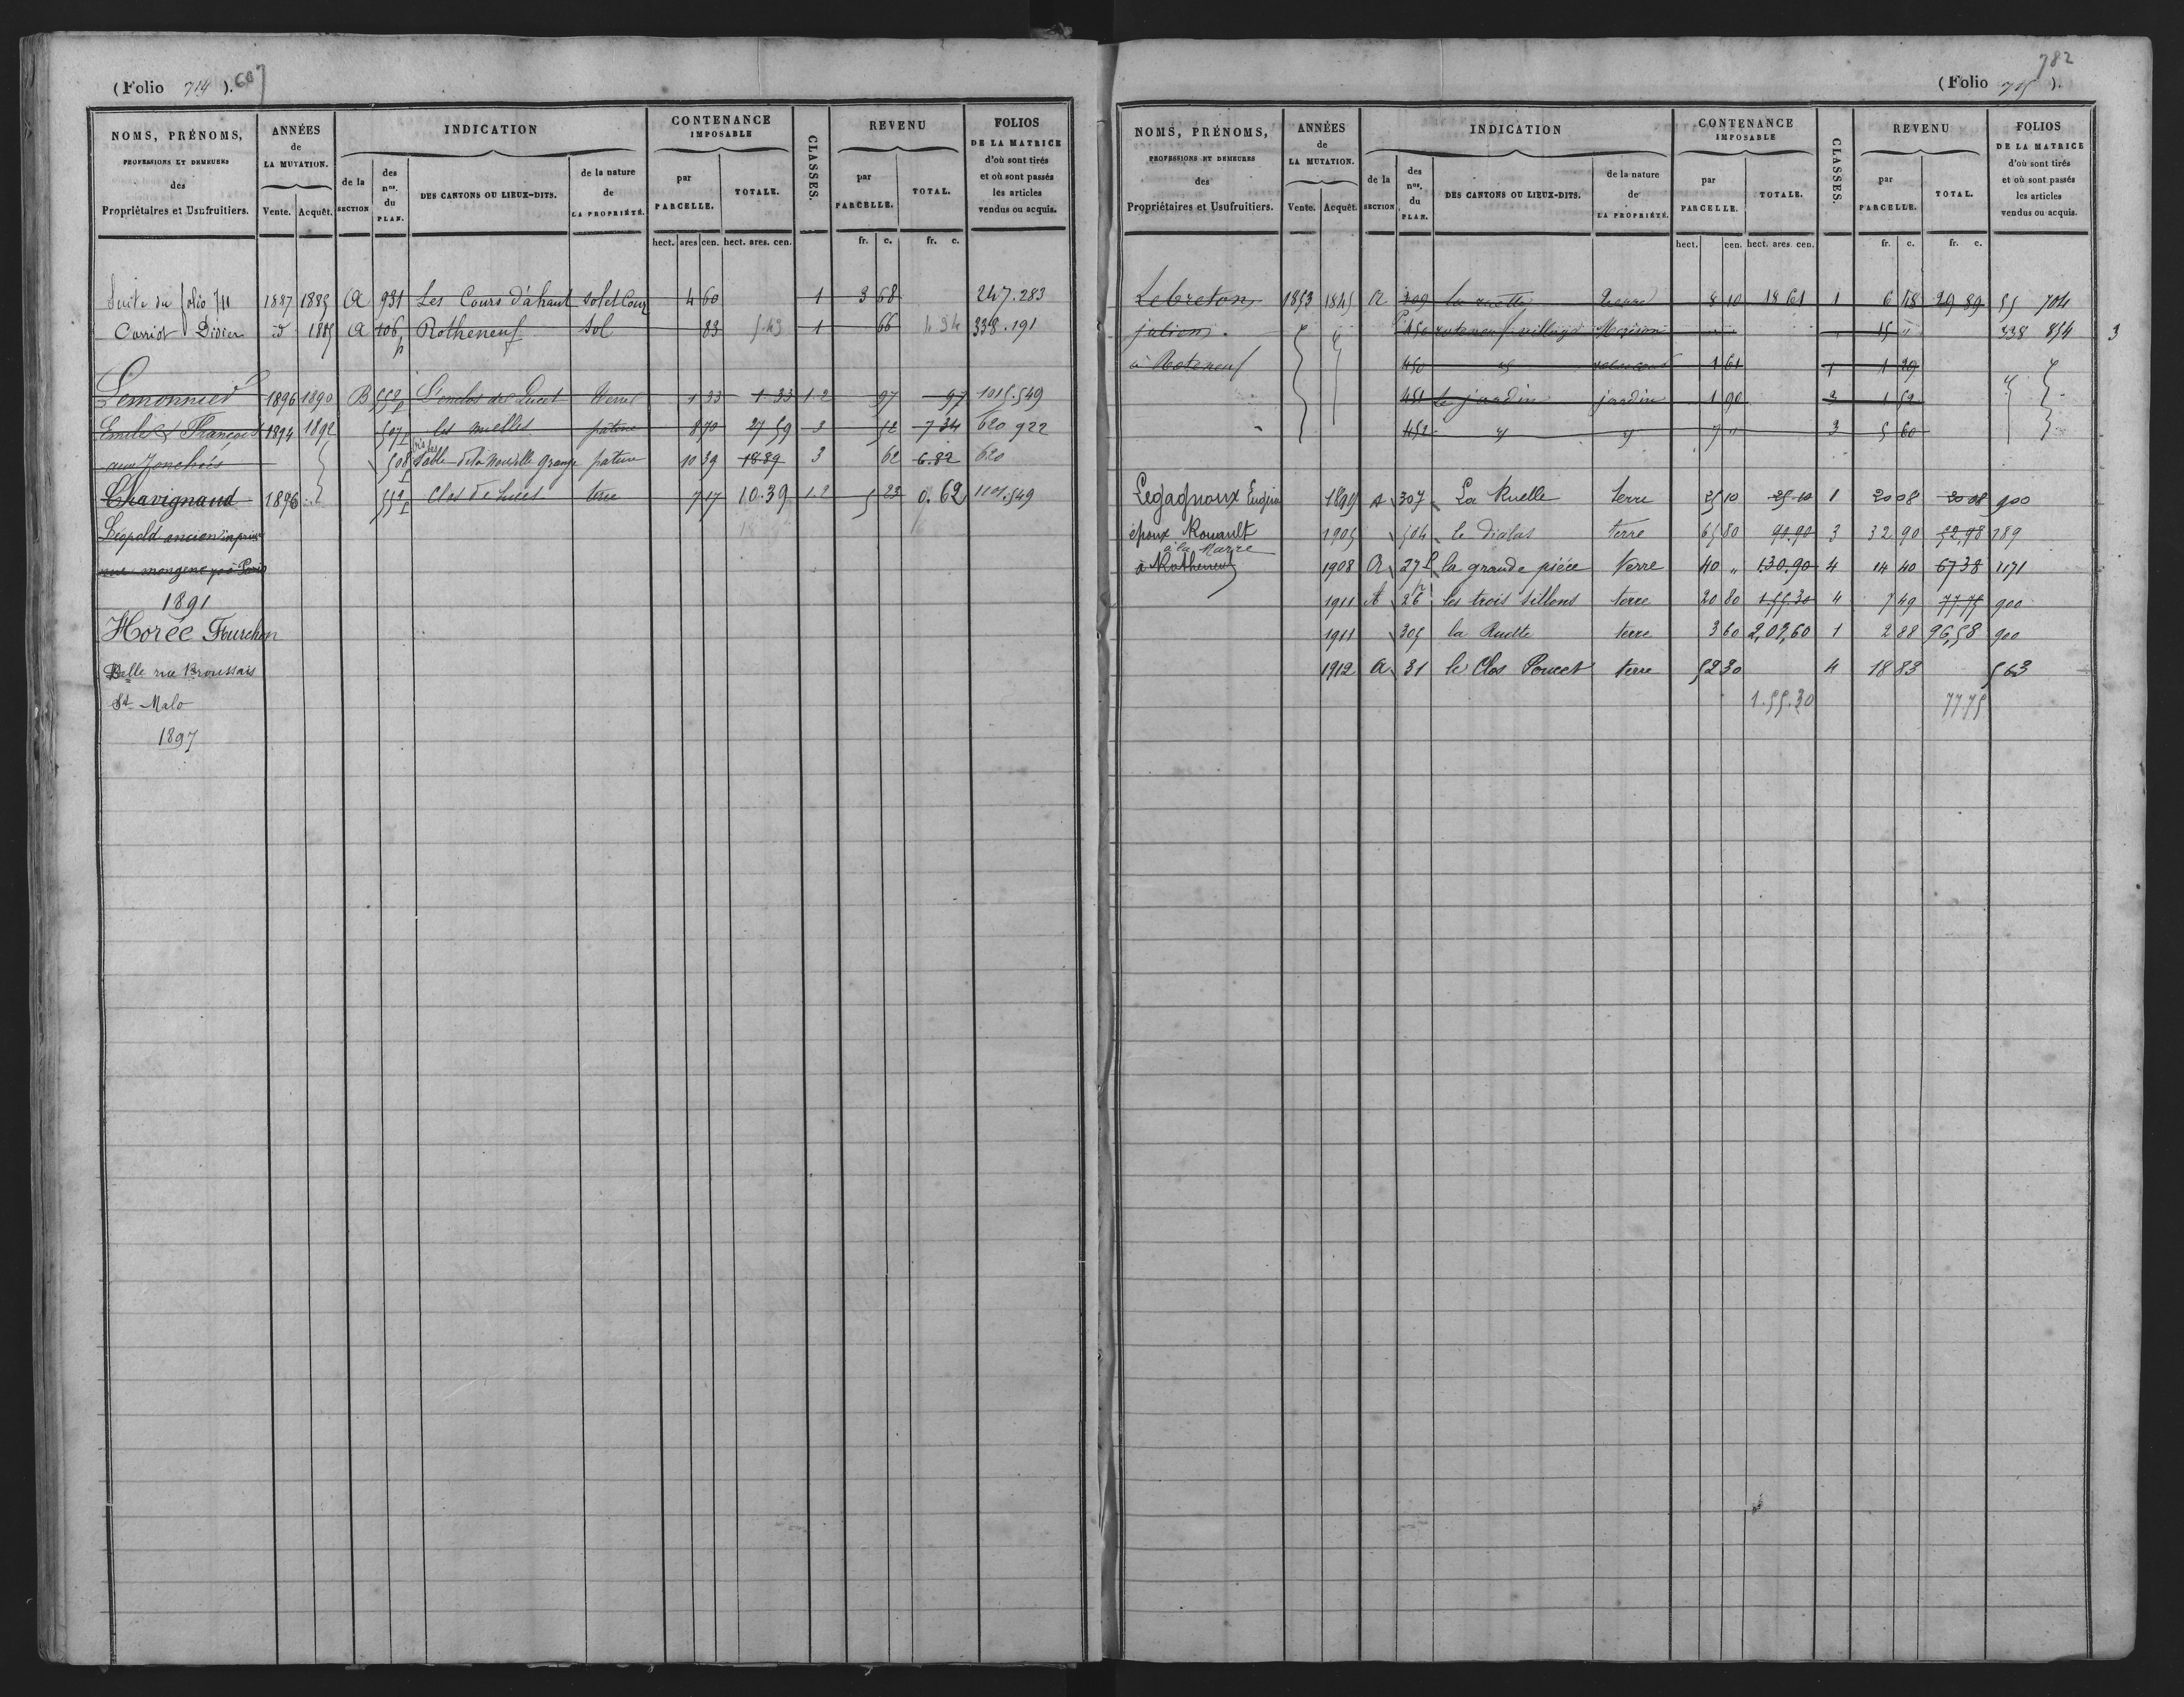 (Folio 714 ). 607
NOMS, PRÉNOMS,
PROFESSIONS ET DEMEURES
des
Propriétaires et Usufruitiers.
ANNÉES
de
LA MUTATION.
Vente. Acquêt.
INDICATION
de la
SECTION
des
nos.
du
PLAN.
DES CANTONS OU LIEUX-DITS.
de la nature
de
LA PROPRIÉTÉ.
CONTENANCE
IMPOSABLE
par
PARCELLE.
TOTALE.
CLASSES.
REVENU
par
PARCELLE.
TOTAL.
FOLIOS
DE LA MATRICE
d'où sont tirés
et où sont passés
les articles
vendus ou acquis.
hect. ares cen. hect. ares. cen. fr. c. fr. c.
Suite du folio 711 1887 1885 A 931 Les Cours d'àhaut sol et Cour 4 60 1 3 68 247.283
Carriot Didier d 1885 A 106 p Rotheneuf sol 83 5.43 1 66 4 34 338.191
Lemonnier 1896 1890 B 552 p L'enclos de Lucet Terre 1 33 1.33 1.2 97 97 1015.549
Emile & François 1894 1892 507 les nuelles pature 8 70 27 59 3 52 7 34 620 922
aux Jonchées 508 Sable de la Nouvelle Grange pature 10 39 18.89 3 62 6.82 620
Chavignaud 1896 552 Clos de Lucet terre 7 17 10.39 1.2 5 23 0.62 1101.549
Léopold ancien
rue monge à Paris
1891
Horée Fourchon
Belle rue Broussais
St Malo
1897
782
(Folio 715 ).
NOMS, PRÉNOMS,
PROFESSIONS ET DEMEURES
des
Propriétaires et Usufruitiers.
ANNÉES
de
LA MUTATION.
Vente. Acquêt.
INDICATION
de la
SECTION
des
nos.
du
PLAN.
DES CANTONS OU LIEUX-DITS.
de la nature
de
LA PROPRIÉTÉ.
CONTENANCE
IMPOSABLE
par
PARCELLE.
TOTALE.
CLASSES.
REVENU
par
PARCELLE.
TOTAL.
FOLIOS
DE LA MATRICE
d'où sont tirés
et où sont passés
les articles
vendus ou acquis.
hect. cen. hect. ares. cen. fr. c. fr. c.
Lebreton 1853 1845 A 309 la ruette Terre 8 10 18 61 1 6 48 29 89 55 704
julien. P 450 roteneuf village Maison " " 15 " 338 854 3
à Roteneuf 450 1 61 1 1 29
451 le jardin jardin 1 90 3 1 52
452 7 " 3 5 60
Legagnoux Eugène 1899 A 307 La Ruelle terre 25 10 25 10 1 20 08 20 08 900
époux Rouault 1905 504 le Dialas terre 65 80 90.90 3 32 90 52.98 789
à la Marre
à Rotheneuf 1908 A 27 P la grande pièce terre 40 " 1.30.90 4 14 40 67 38 1171
1911 A 26 p les trois Sillons terre 20 80 1.55.30 4 7 49 77.75 900
1911 305 la Ruette terre 3 60 2,03,60 1 2 88 96,58 900
1912 A 31 le Clos Poucet terre 52 30 4 18 83 563
1.55.30 77.75